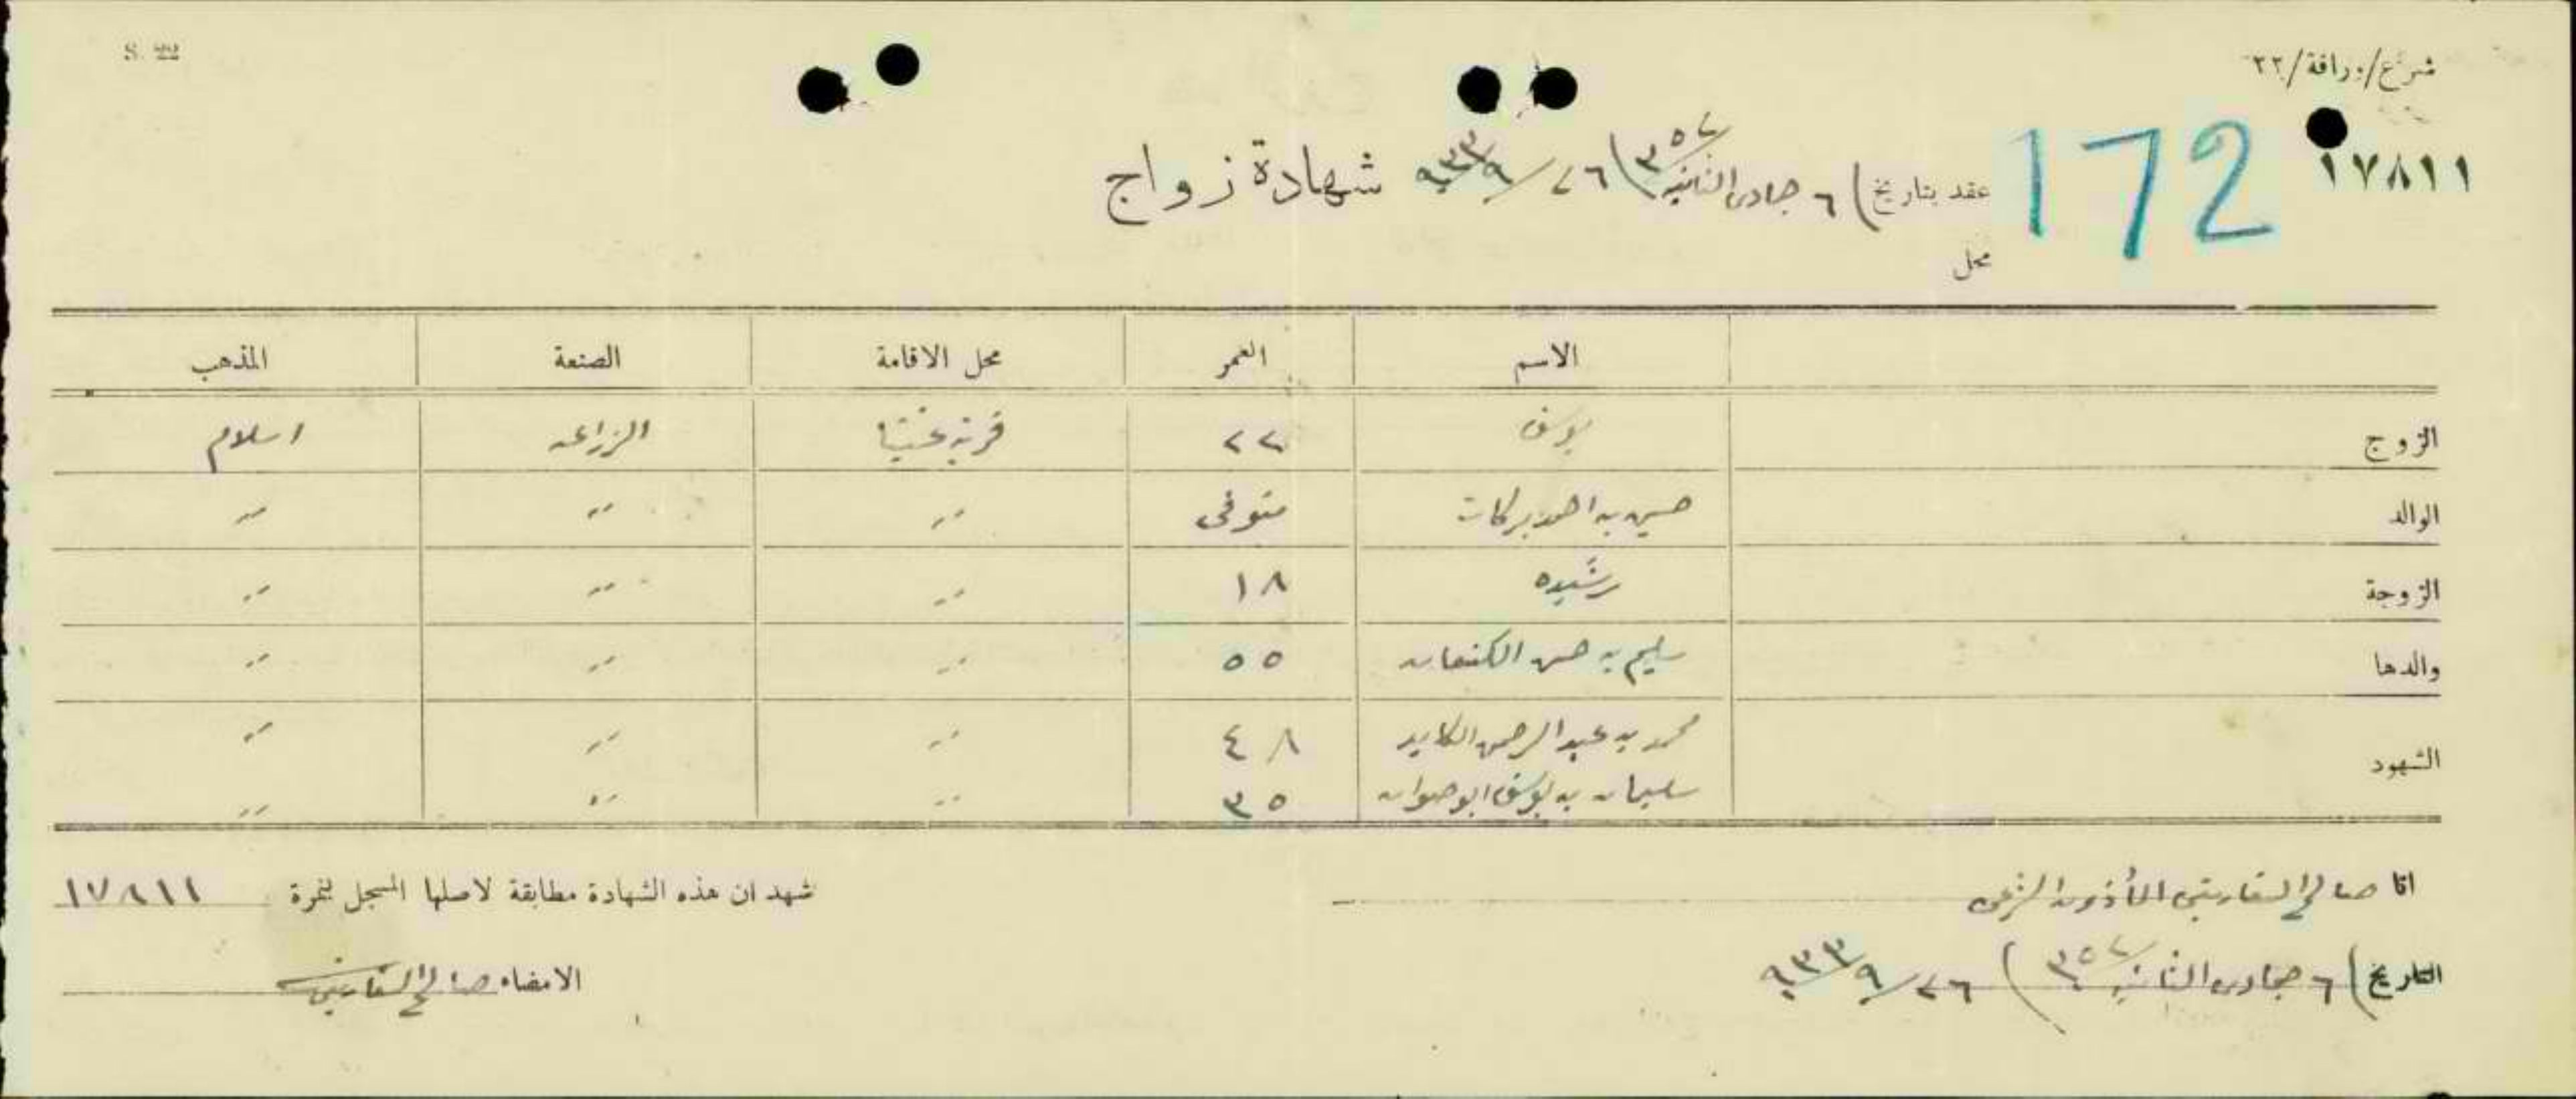 S. 22
شرع/وراقة/٢٢
١٧٨١١
172
عقد بتاريخ) ٦ جمادى الثانيه ٣٥٢) ٢٦/٩/٩٣٣ شهادة زواج
محل
الاسم العمر محل الاقامة الصنعة المذهب
الزوج يوسف ٢٢ قرية عنبتا الزراعه اسلام
الوالد حسين بن احمد بركات متوفى " " "
الزوجة رشيده ١٨ " " "
والدها سليم بن حسن الكنعان ٥٥ " " "
الشهود محمد بن عبد الرحمن الكايد ٤٨ " " "
سليمان بن يوسف ابو صوان ٣٥ " " "
انا صالح السفاريني المأذون الشرعي شهد ان هذه الشهادة مطابقة لاصلها المسجل بنمرة ١٧٨١١
التاريخ) ٦ جمادى الثانيه ٣٥٢) ٢٦/٩/٩٣٣ الامضاء صالح السفاريني